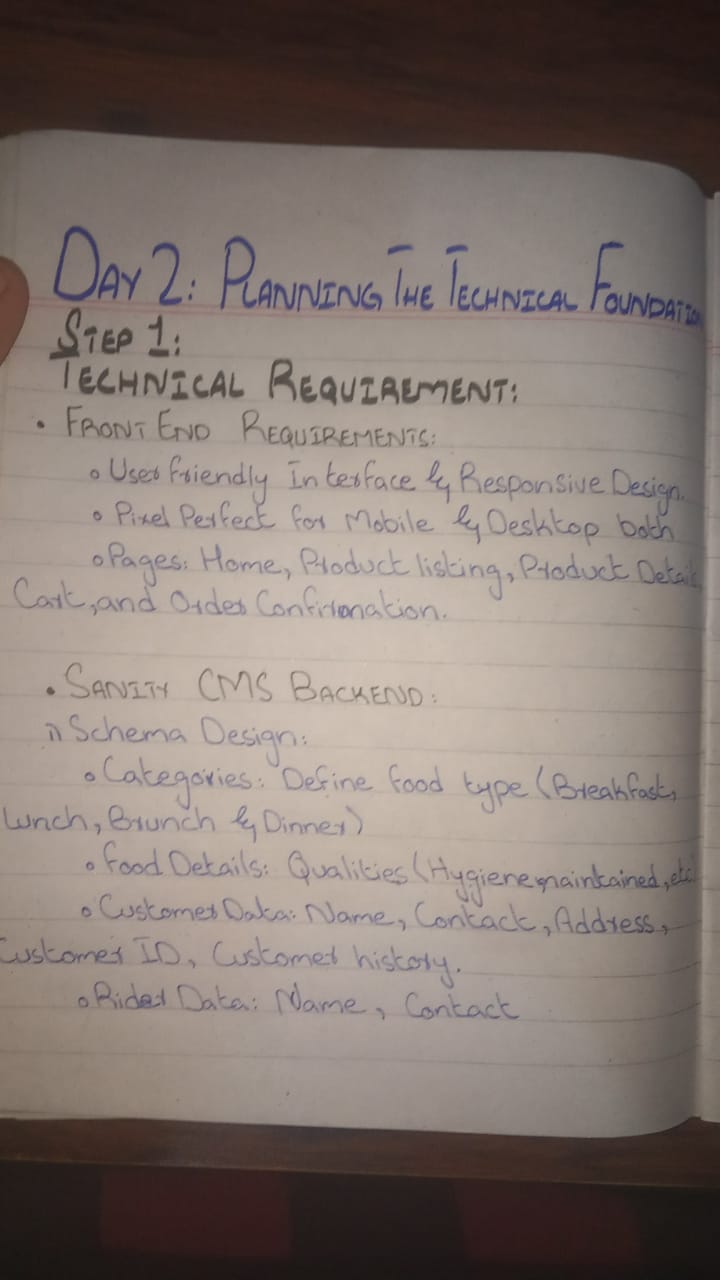 DAY 2: PLANNING THE TECHNICAL FOUNDATION
STEP 1:
TECHNICAL REQUIREMENT:
• FRONT END REQUIREMENTS:
o User friendly Interface & Responsive Design.
o Pixel Perfect for Mobile & Desktop both
o Pages: Home, Product listing, Product Detail,
Cart, and Order Confirmation.
• SANITY CMS BACKEND:
1) Schema Design:
o Categories: Define food type (Breakfast,
Lunch, Brunch & Dinner)
o Food Details: Qualities (Hygiene maintained, etc)
o Customer Data: Name, Contact, Address,
Customer ID, Customer history.
o Rider Data: Name, Contact